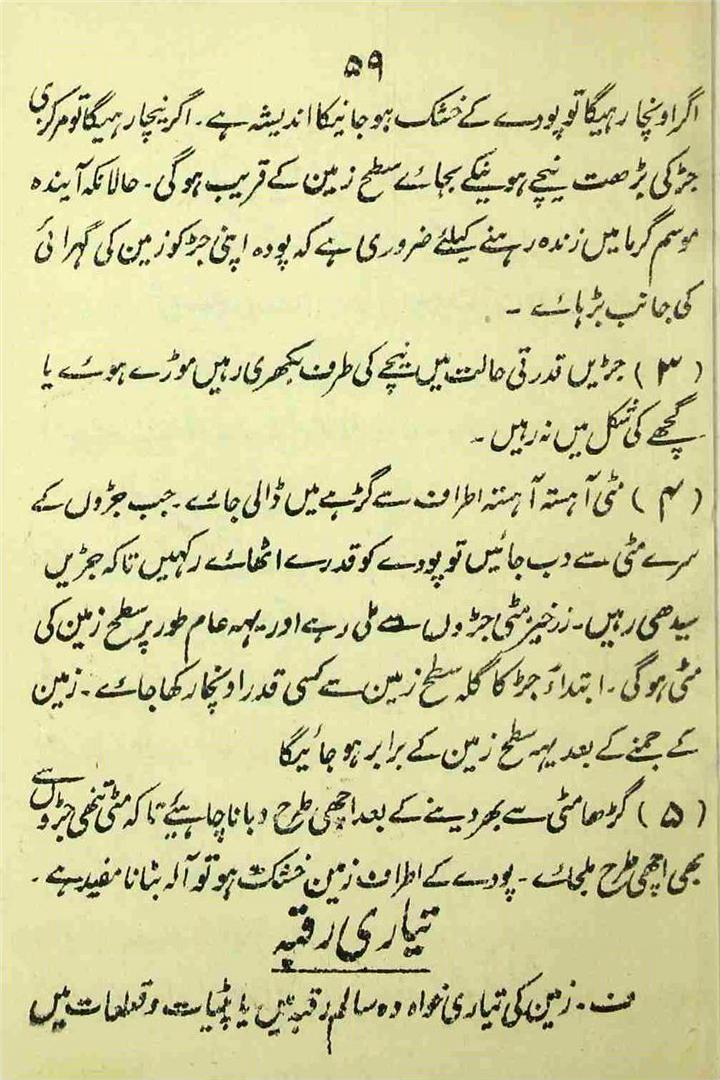 ۵۹
اگر اونچا رہیگا تو پودے کے خشک ہو جانیکا اندیشہ ہے۔ اگر نیچا رہیگا تو مرکزی
جڑ کی بڑھت نیچے ہونیکے بجائے سطح زمین کے قریب ہوگی۔ حالانکہ آیندہ
موسم گرما میں زندہ رہنے کیلئے ضروری ہے کہ پودہ اپنی جڑ کو زمین کی گہرائی
کی جانب بڑہائے ۔
(۳) جڑیں قدرتی حالت میں نیچے کی طرف بکھری رہیں موڑے ہوئے یا
گچھے کی شکل میں نہ رہیں ۔
(۴) مٹی آہستہ آہستہ اطراف سے گڑہے میں ڈالی جائے ۔ جب جڑوں کے
سرے مٹی سے دب جائیں تو پودے کو قدرے اٹھائے رکہیں تاکہ جڑیں
سیدھی رہیں۔ زرخیز مٹی جڑوں سے ملی رہے اور یہہ عام طور پر سطح زمین کی
مٹی ہوگی ۔ ابتداً جڑ کا گلہ سطح زمین سے کسی قدر اونچا رکھا جائے ۔ زمین
کے جمنے کے بعد یہہ سطح زمین کے برابر ہو جائیگا
(۵) گڑھا مٹی سے بھر دینے کے بعد اچھی طرح دبانا چاہیئے تاکہ مٹی ننھی جڑوں سے
بھی اچھی طرح ملجائے ۔ پودے کے اطراف زمین خشک ہو تو آلہ بنانا مفید ہے ۔
تیاری رقبہ
ف ۔ زمین کی تیاری خواہ وہ سالم رقبہ میں یا پٹیات و قطعات میں